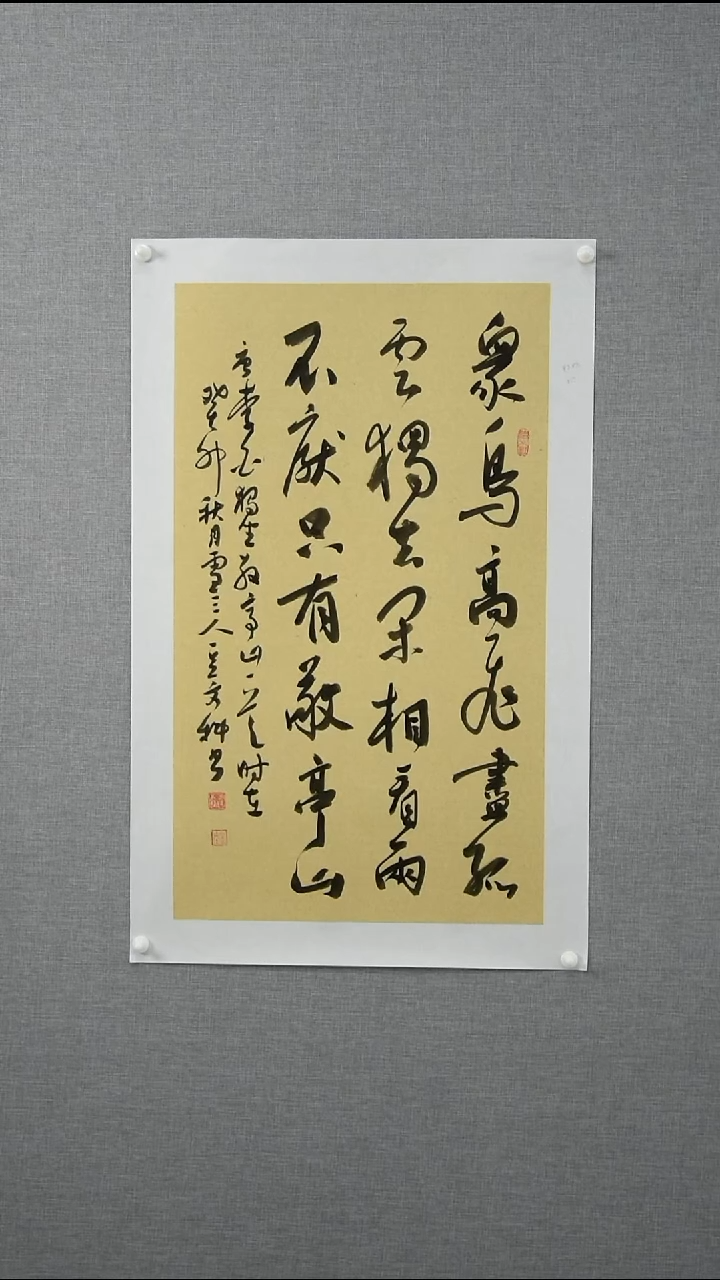 衆鳥高飛盡孤
雲獨去閑相看兩
不厭只有敬亭山
唐李白獨坐敬亭山一首時在
癸卯秋月雲三人文科書